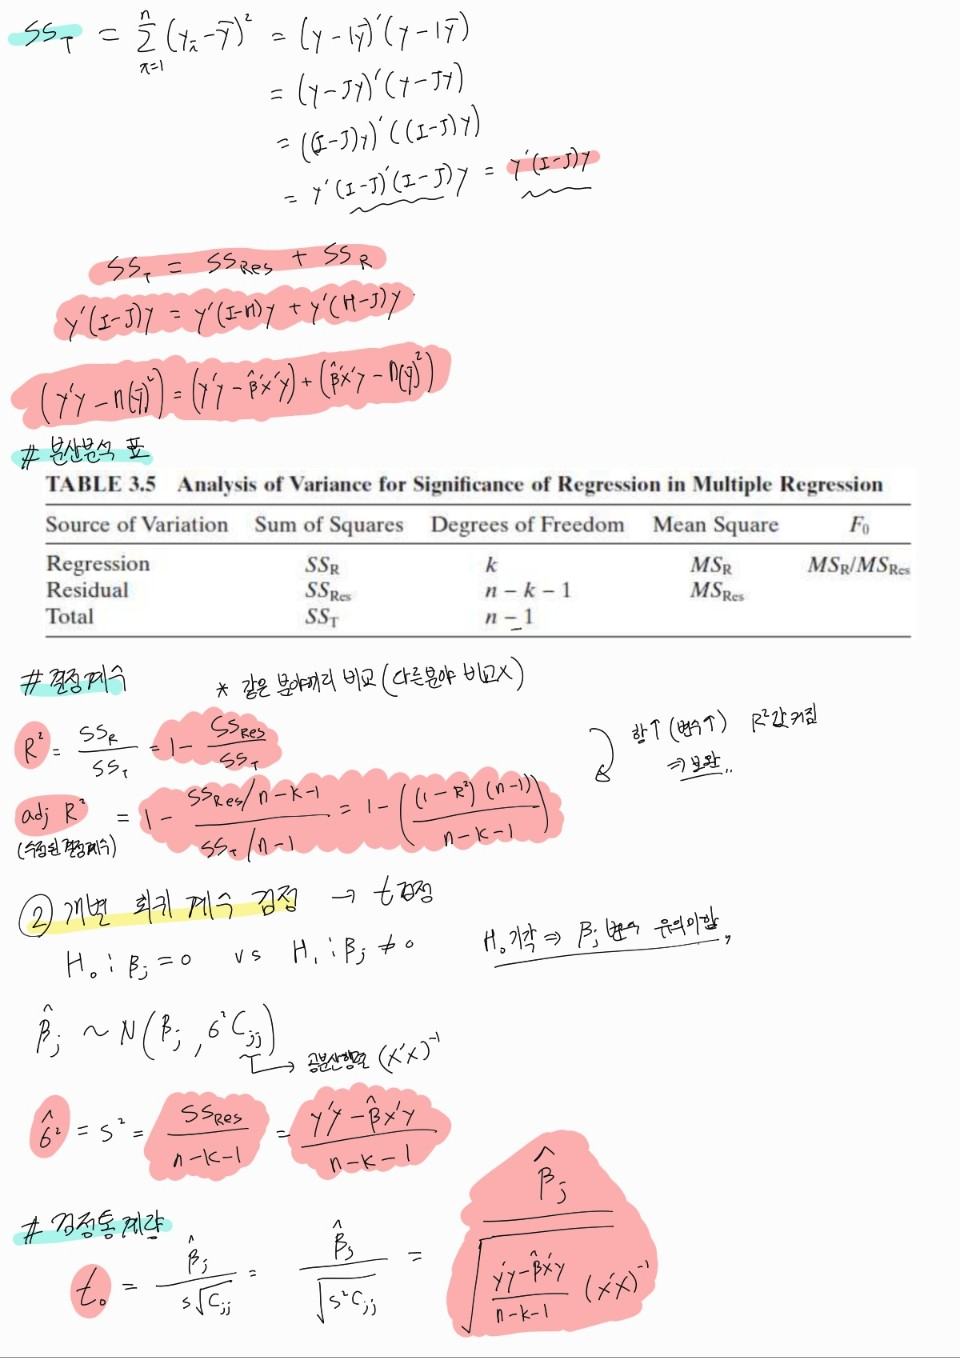 SS_T = Σ_{i=1}^{n} (y_i - ȳ)² = (y - 1ȳ)'(y - 1ȳ)
= (y - Jy)'(y - Jy)
= ((I-J)y)'((I-J)y)
= y'(I-J)'(I-J)y = y'(I-J)y
SS_T = SS_Res + SS_R
y'(I-J)y = y'(I-H)y + y'(H-J)y
(y'y - n(ȳ)²) = (y'y - β̂'x'y) + (β̂'x'y - n(ȳ)²)
# 분산분석 표
TABLE 3.5 Analysis of Variance for Significance of Regression in Multiple Regression
Source of Variation Sum of Squares Degrees of Freedom Mean Square F₀
Regression SS_R k MS_R MS_R/MS_Res
Residual SS_Res n − k − 1 MS_Res
Total SS_T n − 1
# 결정계수 * 같은 분야끼리 비교 (다른분야 비교X)
R² = SS_R / SS_T = 1 - SS_Res / SS_T
항↑ (변수↑) R²값 커짐
⇒ 보완..
adj R² = 1 - (SS_Res/n-k-1) / (SS_T/n-1) = 1 - ((1-R²)(n-1) / n-k-1)
(수정된 결정계수)
② 개별 회귀 계수 검정 → t검정
H₀ : β_j = 0 vs H₁ : β_j ≠ 0 H₀ 기각 ⇒ β_j 변수 유의미함,
β̂_j ~ N(β_j, σ²C_jj)
→ 공분산행렬 (x'x)⁻¹
σ̂² = s² = SS_Res / n-k-1 = y'y - β̂x'y / n-k-1
# 검정통계량
t₀ = β̂_j / s√C_jj = β̂_j / √(s²C_jj) = β̂_j / √((y'y - β̂x'y / n-k-1) (x'x)⁻¹)